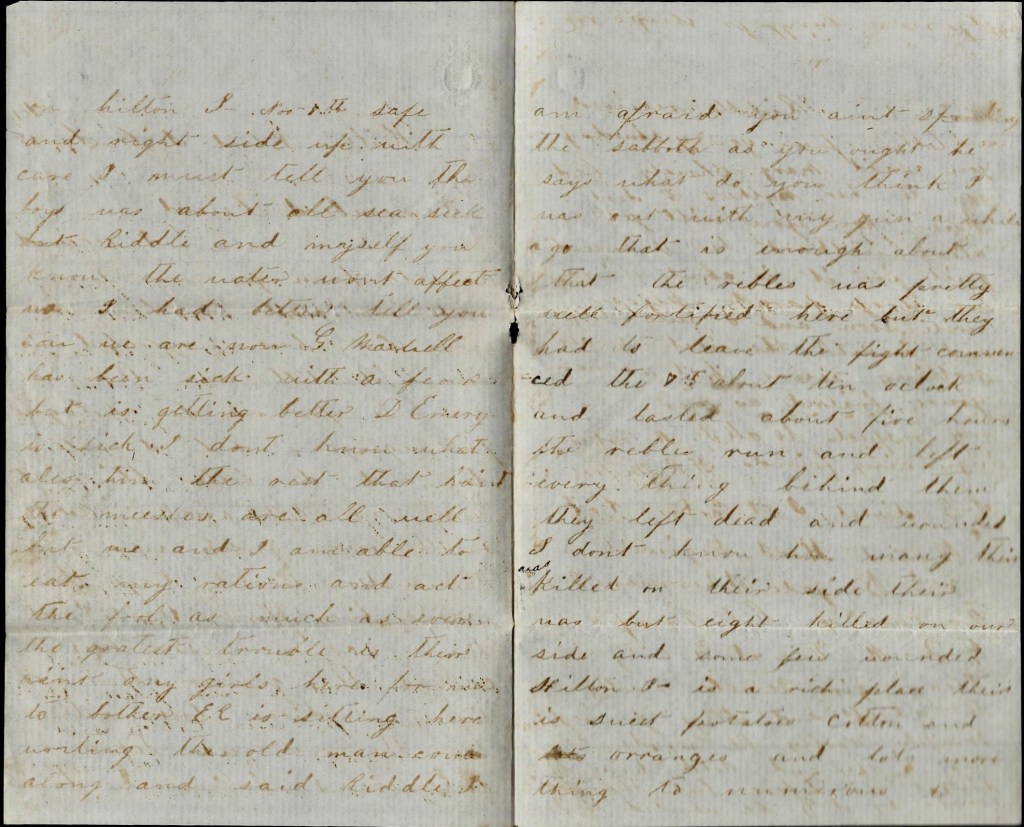 on hilton I Nov 8th safe
and right side up with
care I must tell you the
boys was about all sea sick
but Riddle and myself you
know the water wont affect
us I had better tell you
how we are now G
has been sick with a fever
but is getting better D Emery
is sick I dont know what
ales him the rest that haint
the are all well
but me and I am able to
eat my rations and act
the fool as much as ever
the gratest trouble is their
aint any girls here for me
to bother E R is sitting here
writing the old man come
along and said Riddle I
am afraid you aint spending
the sabboth as you ought he
says what do you think I
was out with my gun a while
ago that is enough about
that the rebles was pretty
well fortified here but they
had to leave the fight commen
ced the 7th about ten oclock
and lasted about five hours
the rebles run and left
every thing behind them
they left dead and wounded
I dont know how many their
was
killed on their side their
was but eight killed on our
side and some few wounded
Hilton I is a rich place their
is sweet potatoes Cotton and
orranges and lots more
thing to numerous to